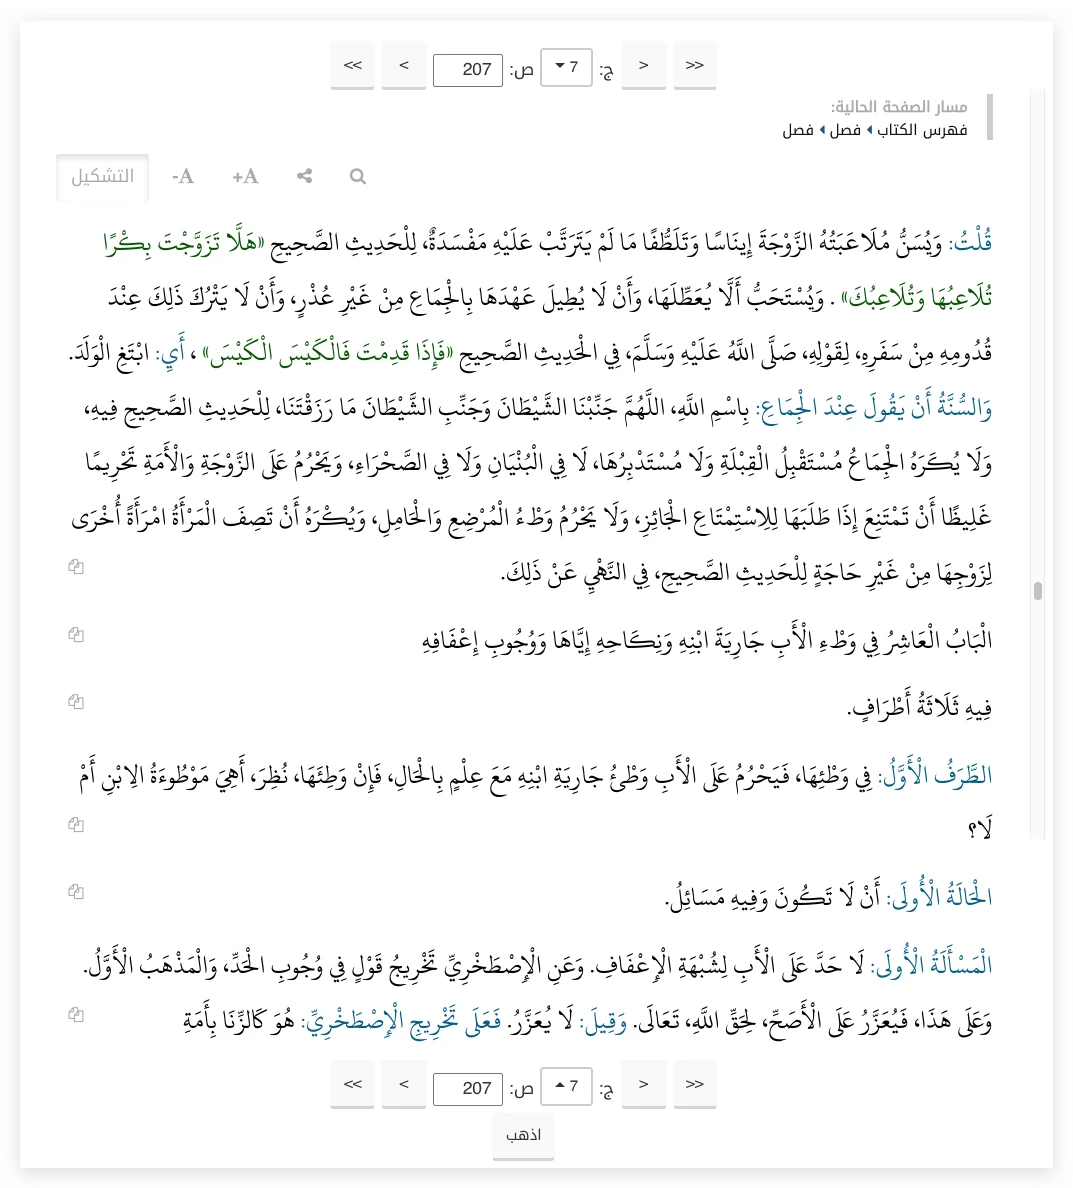 << < ج: 7 ص: 207 > >>
مسار الصفحة الحالية:
فهرس الكتاب فصل فصل
A+ A- التشكيل
قُلْتُ: وَيُسَنُّ مُلَاعَبَتُهُ الزَّوْجَةَ إِينَاسًا وَتَلَطُّفًا مَا لَمْ يَتَرَتَّبْ عَلَيْهِ مَفْسَدَةٌ، لِلْحَدِيثِ الصَّحِيحِ «هَلَّا تَزَوَّجْتَ بِكْرًا
تُلَاعِبُهَا وَتُلَاعِبُكَ» . وَيُسْتَحَبُّ أَلَّا يُعَطِّلَهَا، وَأَنْ لَا يُطِيلَ عَهْدَهَا بِالْجِمَاعِ مِنْ غَيْرِ عُذْرٍ، وَأَنْ لَا يَتْرُكَ ذَلِكَ عِنْدَ
قُدُومِهِ مِنْ سَفَرِهِ، لِقَوْلِهِ، صَلَّى اللَّهُ عَلَيْهِ وَسَلَّمَ، فِي الْحَدِيثِ الصَّحِيحِ «فَإِذَا قَدِمْتَ فَالْكَيْسَ الْكَيْسَ» ، أَيِ: ابْتَغِ الْوَلَدَ.
وَالسُّنَّةُ أَنْ يَقُولَ عِنْدَ الْجِمَاعِ: بِاسْمِ اللَّهِ، اللَّهُمَّ جَنِّبْنَا الشَّيْطَانَ وَجَنِّبِ الشَّيْطَانَ مَا رَزَقْتَنَا، لِلْحَدِيثِ الصَّحِيحِ فِيهِ،
وَلَا يُكْرَهُ الْجِمَاعُ مُسْتَقْبِلُ الْقِبْلَةِ وَلَا مُسْتَدْبِرُهَا، لَا فِي الْبُنْيَانِ وَلَا فِي الصَّحْرَاءِ، وَيَحْرُمُ عَلَى الزَّوْجَةِ وَالْأَمَةِ تَحْرِيمًا
غَلِيظًا أَنْ تَمْتَنِعَ إِذَا طَلَبَهَا لِلِاسْتِمْتَاعِ الْجَائِزِ، وَلَا يَحْرُمُ وَطْءُ الْمُرْضِعِ وَالْحَامِلِ، وَيُكْرَهُ أَنْ تَصِفَ الْمَرْأَةُ امْرَأَةً أُخْرَى
لِزَوْجِهَا مِنْ غَيْرِ حَاجَةٍ لِلْحَدِيثِ الصَّحِيحِ، فِي النَّهْيِ عَنْ ذَلِكَ.
الْبَابُ الْعَاشِرُ فِي وَطْءِ الْأَبِ جَارِيَةَ ابْنِهِ وَنِكَاحِهِ إِيَّاهَا وَوُجُوبِ إِعْفَافِهِ
فِيهِ ثَلَاثَةُ أَطْرَافٍ.
الطَّرَفُ الْأَوَّلُ: فِي وَطْئِهَا، فَيَحْرُمُ عَلَى الْأَبِ وَطْئُ جَارِيَةِ ابْنِهِ مَعَ عِلْمٍ بِالْحَالِ، فَإِنْ وَطِئَهَا، نُظِرَ، أَهِيَ مَوْطُوءَةُ الِابْنِ أَمْ
لَا؟
الْحَالَةُ الْأُولَى: أَنْ لَا تَكُونَ وَفِيهِ مَسَائِلُ.
الْمَسْأَلَةُ الْأُولَى: لَا حَدَّ عَلَى الْأَبِ لِشُبْهَةِ الْإِعْفَافِ. وَعَنِ الْإِصْطَخْرِيِّ تَخْرِيجُ قَوْلٍ فِي وُجُوبِ الْحَدِّ، وَالْمَذْهَبُ الْأَوَّلُ.
وَعَلَى هَذَا، فَيُعَزَّرُ عَلَى الْأَصَحِّ، لِحَقِّ اللَّهِ، تَعَالَى. وَقِيلَ: لَا يُعَزَّرُ. فَعَلَى تَخْرِيجِ الْإِصْطَخْرِيِّ: هُوَ كَالزِّنَا بِأَمَةِ
<< < ج: 7 ص: 207 > >>
اذهب